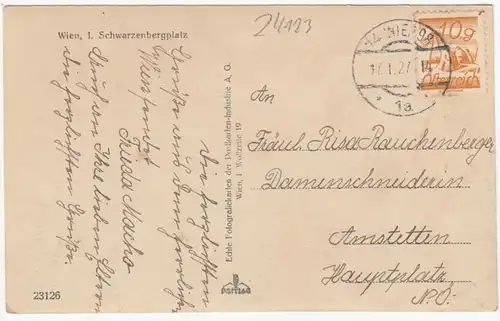 24123
Wien, 1. Schwarzenbergplatz
die herzlichsten
Grüße und
Wien sendet
Frida Macho
Auch an Ihre lieben Eltern
die herzlichsten Grüße.
Echte Fotografiekarten der Postkarten-Industrie A. G.
Wien, I Wollzeile 19
PORTIAG
WIEN
17.I.27
1a
10g
An
Fräul. Risa Rauchenberger
Damenschneiderin
Amstetten
Hauptplatz
N.Ö.
23126